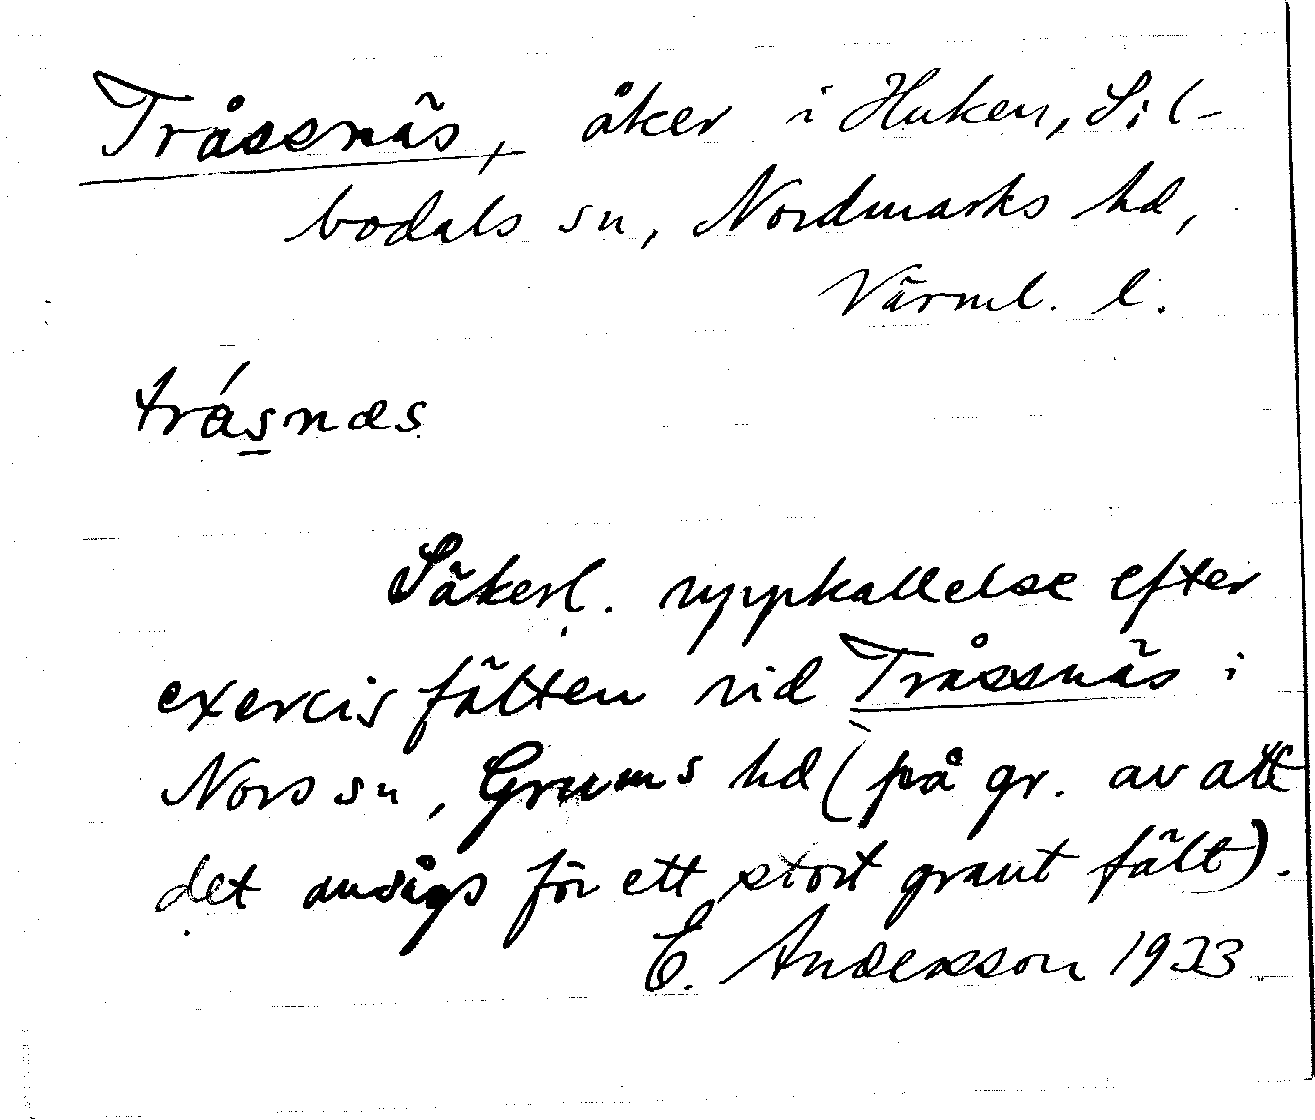 Tråssnäs, åker i Huken, Sil-
bodals sn, Nordmarks hd,
Värml. l.
trásnæs
Säkerl. uppkallelse efter
exercisfälten vid Tråssnäs i
Nors sn, Grums hd (på gr. av att
det ansågs för ett stort grant fält).
E. Andersson 1933